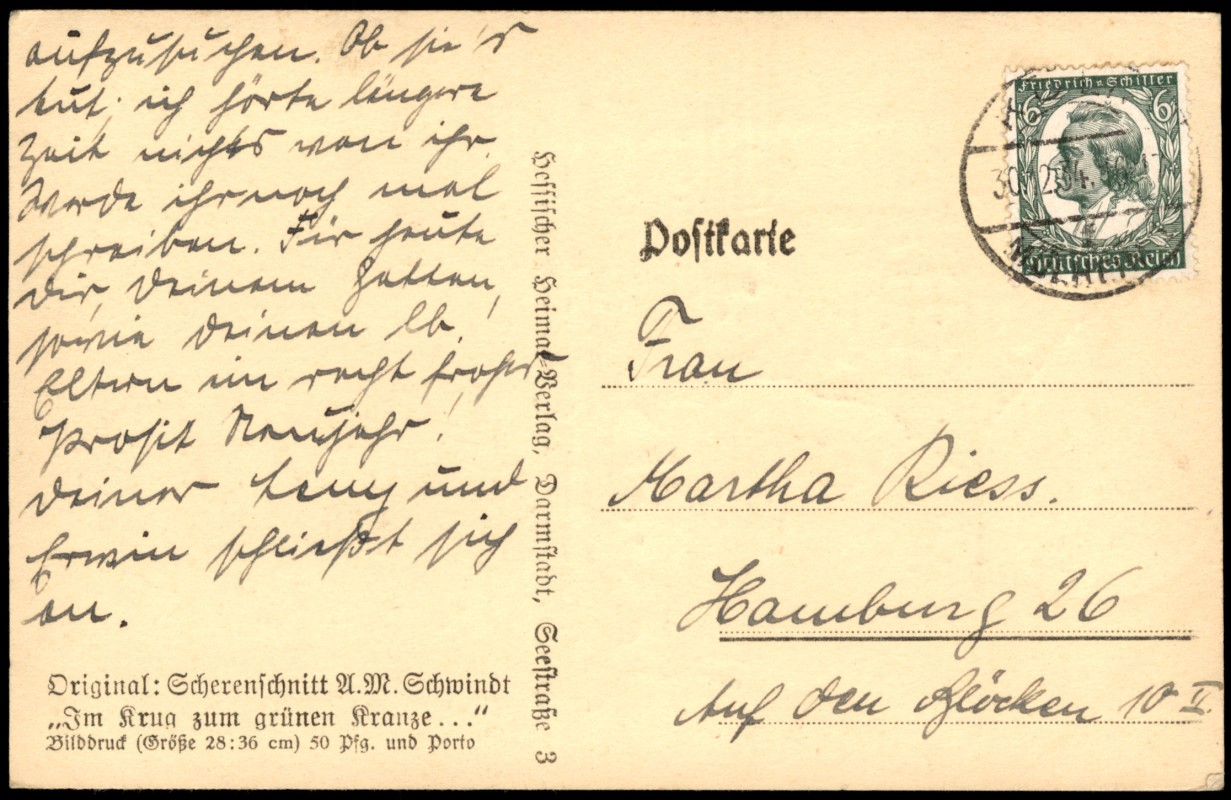 aufzusuchen. Ob sie's
tut, ich hörte längere
Zeit nichts von ihr.
Werde ihr noch mal
schreiben. Für heute
Dir, Deinem Gatten,
sowie Deinen lb.
Eltern ein recht frohes
Prosit Neujahr!
Deiner Leny und
Erwin schließt sich
an.
Original: Scherenschnitt A.M. Schwindt
„Im Krug zum grünen Kranze..."
Bilddruck (Größe 28:36 cm) 50 Pfg. und Porto
Hessischer Heimat-Verlag, Darmstadt, Seestraße 3
Postkarte
Friedrich v. Schiller
6 6
Deutsches Reich
30.12.34.
Frau
Martha Riess.
Hamburg 26
Auf den Blöcken 10 II.